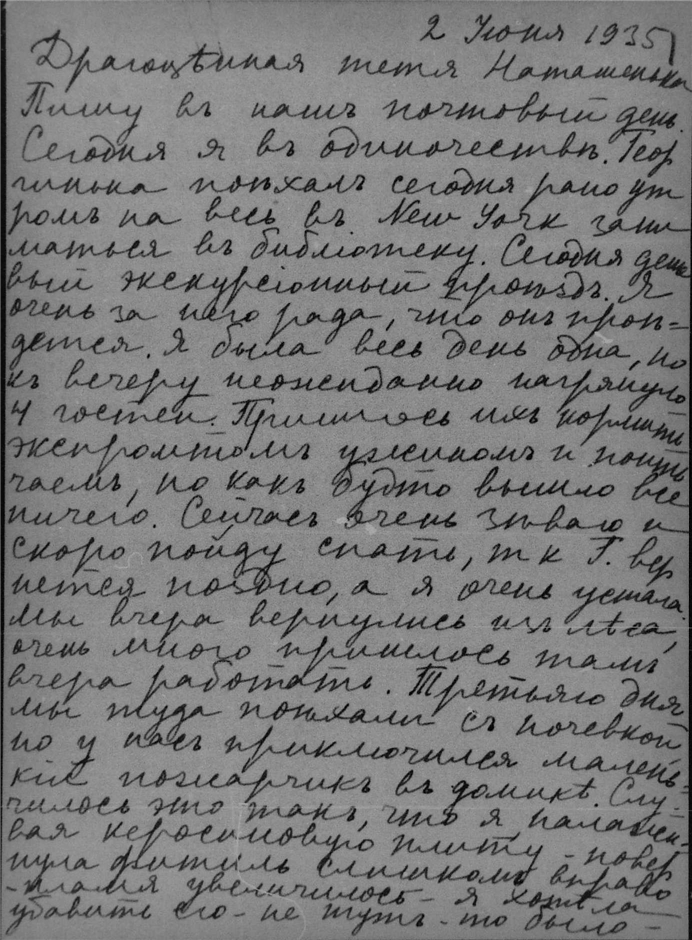 2 Июня 1935
Драгоцѣнная тетя Наташенька
Пишу въ нашъ почтовый день.
Сегодня я въ одиночествѣ. Геор
гинька поѣхалъ сегодня рано ут
ромъ на весь въ New York зани
маться въ библіотеку. Сегодня деше
вый экскурсіонный проѣздъ. Я
очень за него рада, что онъ прой-
дется. Я была весь день одна, но
къ вечеру неожиданно нагрянуло
4 гостей. Пришлось ихъ кормить
экспромтомъ ужиномъ и поить
чаемъ, но какъ будто вышло все
ничего. Сейчасъ очень зѣваю и
скоро пойду спать, т к Г. вер
нется поздно, а я очень устала.
Мы вчера вернулись изъ лѣса,
очень много пришлось тамъ
вчера работать. Третьяго дня
мы туда поѣхали съ ночевкой
но у насъ приключился малень-
кій пожарчикъ въ домикѣ. Слу-
чилось это такъ, что я, налажи-
вая керосиновую плиту - повер
нула фитиль слишкомъ вправо
- пламя увеличилось - я хотѣла
убавить его - не тутъ - то было -